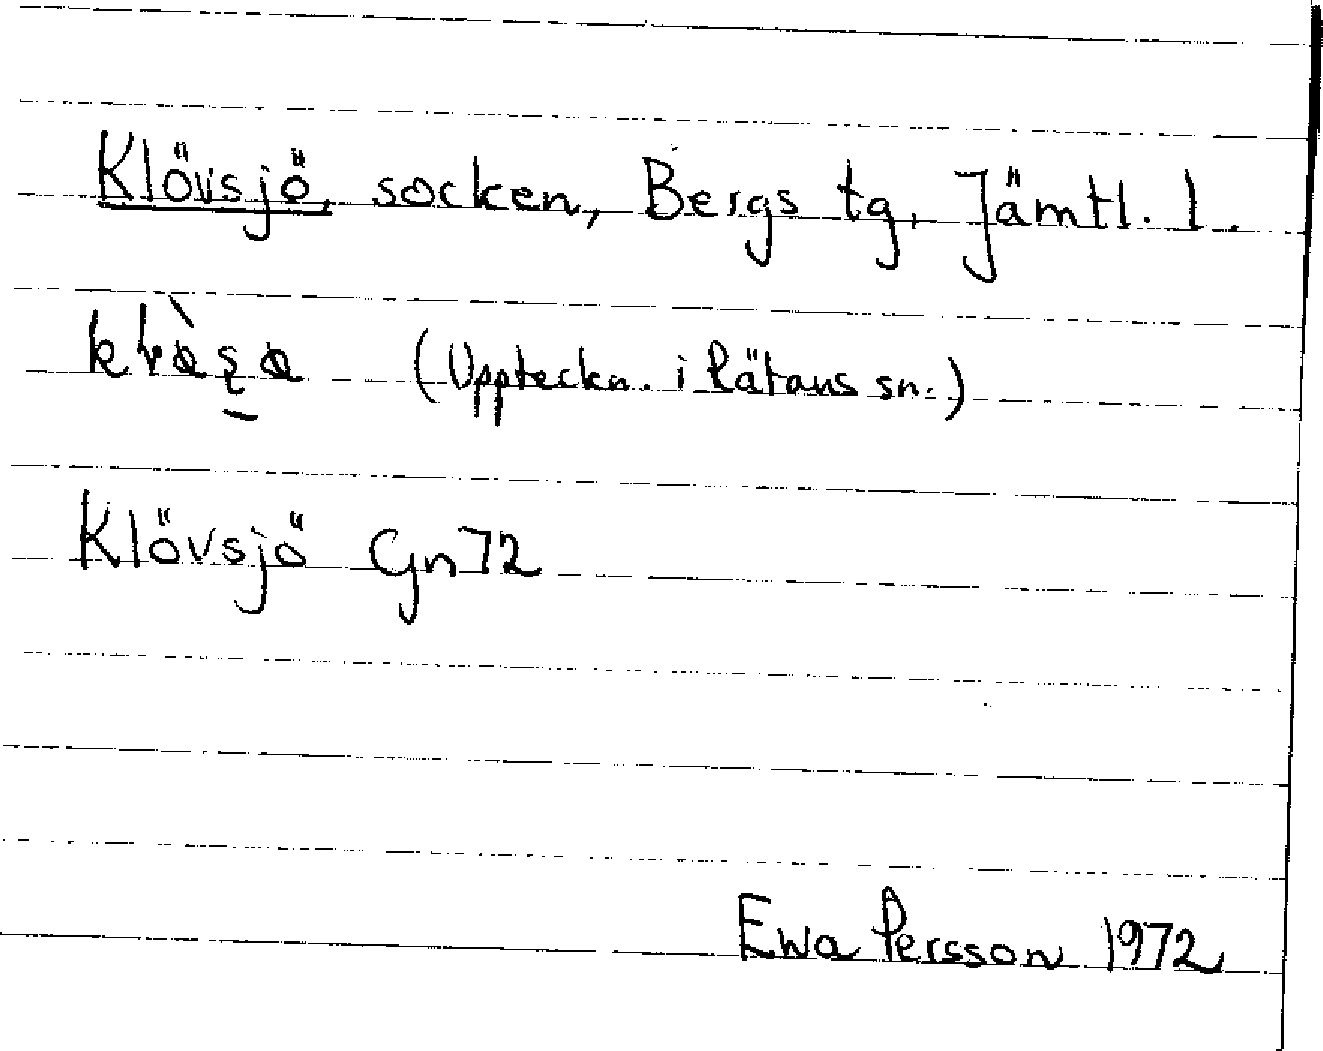 Klövsjö, socken, Bergs tg, Jämtl. l.
(Uppteckn. i Rätans sn.)
Klövsjö Gn72
Ewa Persson 1972